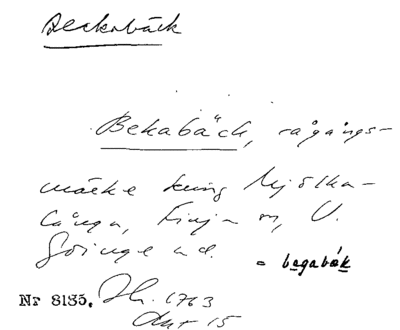 Beckabäck
Bekabäck, rågångs-
märke kring Mjölka-
långa, Finja sn, V.
Göinge hd.
= begabæk
Nr 8135. Lh. 1763
Akt 15